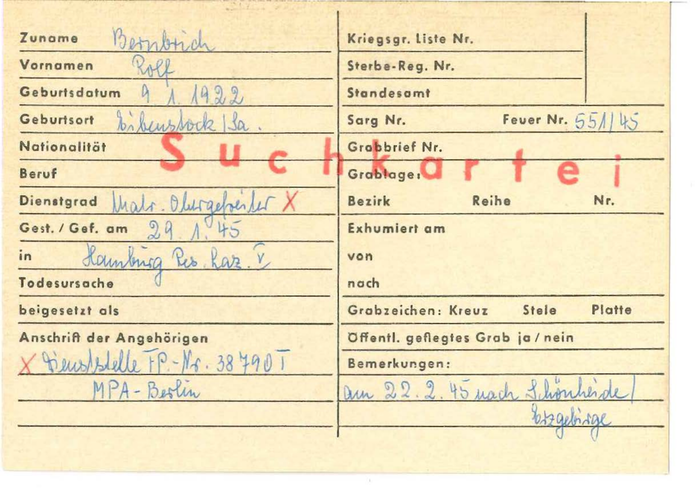 Zuname Bernbrich
Vornamen Rolf
Geburtsdatum 9.1.1922
Geburtsort Eibenstock/Sa.
Nationalität
Beruf
Dienstgrad Matr. Obergefreiter X
Gest./Gef. am 29.1.45
in Hamburg Res. Laz. V
Todesursache
beigesetzt als
Anschrift der Angehörigen
X Dienststelle FP.-Nr. 38790 I
MPA-Berlin
Suchkartei
Kriegsgr. Liste Nr.
Sterbe-Reg. Nr.
Standesamt
Sarg Nr. Feuer Nr. 551/45
Grabbrief Nr.
Grablage:
Bezirk Reihe Nr.
Exhumiert am
von
nach
Grabzeichen: Kreuz Stele Platte
Öffentl. gefiegtes Grab ja/nein
Bemerkungen:
am 22.2.45 nach Schönheide/
Erzgebirge